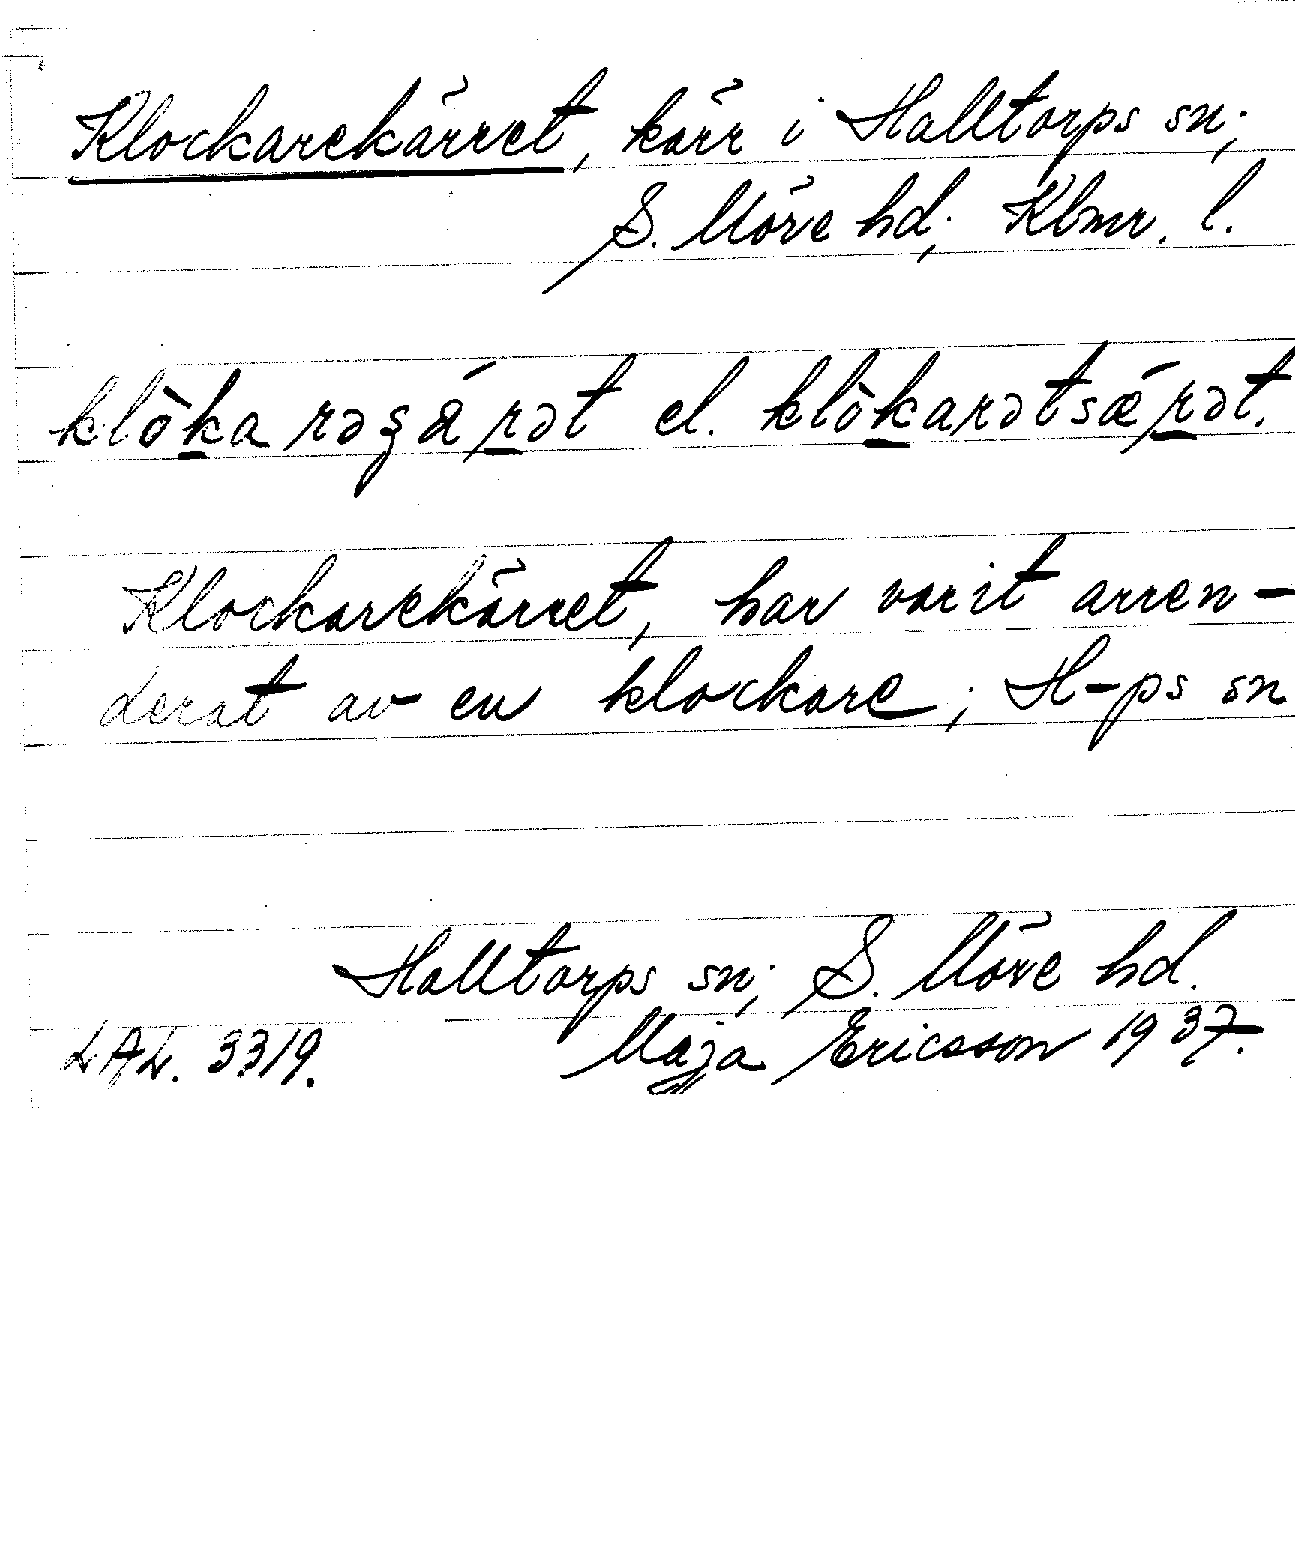 Klockarekärret, kärr i Halltorps sn;
S. Möre hd; Klmr. l.
el.
Klockarekärret, har varit arren-
derat av en klockare; H-ps sn
Halltorps sn; S. Möre hd.
LAL. 3319. Maja Ericsson 1937.